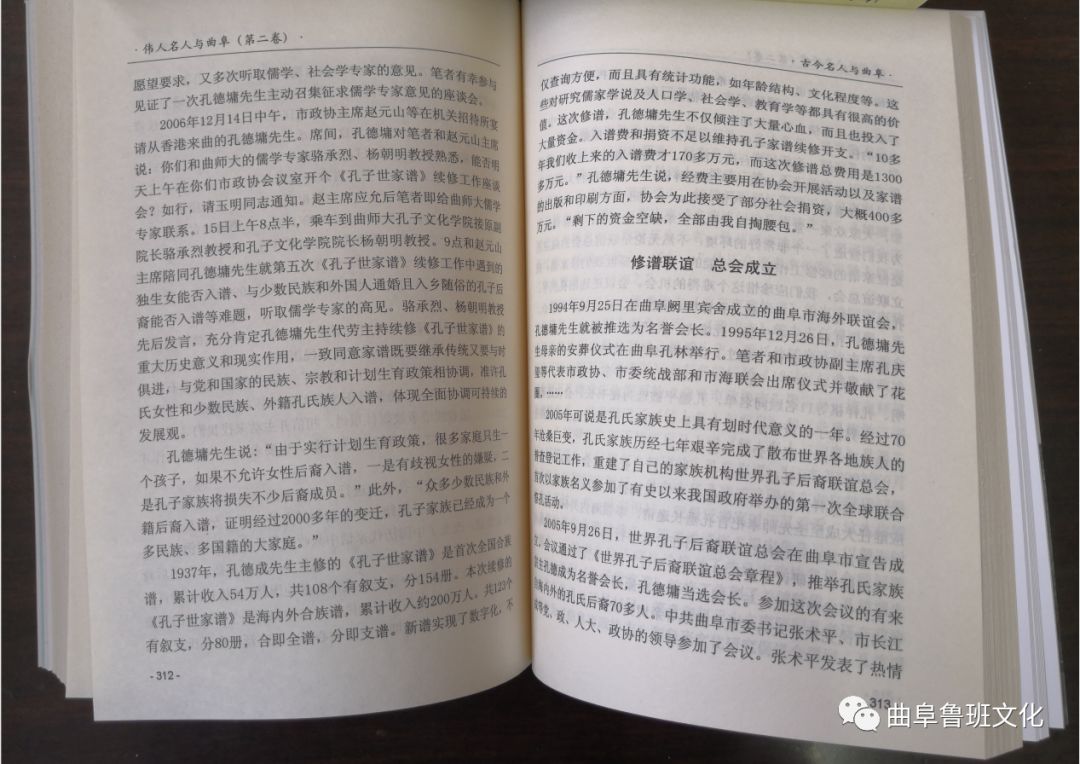 ·伟人名人与曲阜（第二卷）·
愿望要求，又多次听取儒学、社会学专家的意见。笔者有幸参与
见证了一次孔德墉先生主动召集征求儒学专家意见的座谈会。
2006年12月14日中午，市政协主席赵元山等在机关招待所宴
请从香港来曲的孔德墉先生。席间，孔德墉对笔者和赵元山主席
说：你们和曲师大的儒学专家骆承烈、杨朝明教授熟悉，能否明
天上午在你们市政协会议室开个《孔子世家谱》续修工作座谈
会？如行，请玉明同志通知。赵主席应允后笔者即给曲师大儒学
专家联系。15日上午8点半，乘车到曲师大孔子文化学院接原副
院长骆承烈教授和孔子文化学院院长杨朝明教授。9点和赵元山
主席陪同孔德墉先生就第五次《孔子世家谱》续修工作中遇到的
独生女能否入谱、与少数民族和外国人通婚且入乡随俗的孔子后
裔能否入谱等难题，听取儒学专家的高见。骆承烈、杨朝明教授
先后发言，充分肯定孔德墉先生代劳主持续修《孔子世家谱》的
重大历史意义和现实作用，一致同意家谱既要继承传统又要与时
俱进，与党和国家的民族、宗教和计划生育政策相协调，准许孔
氏女性和少数民族、外籍孔氏族人入谱，体现全面协调可持续的
发展观。
孔德墉先生说：“由于实行计划生育政策，很多家庭只生一
个孩子，如果不允许女性后裔入谱，一是有歧视女性的嫌疑，二
是孔子家族将损失不少后裔成员。”此外，“众多少数民族和外
籍后裔入谱，证明经过2000多年的变迁，孔子家族已经成为一个
多民族、多国籍的大家庭。”
1937年，孔德成先生主修的《孔子世家谱》是首次全国合族
谱，累计收入54万人，共108个有叙支，分154册。本次续修的
《孔子世家谱》是海内外合族谱，累计收入约200万人，共123个
有叙支，分80册，合即全谱，分即支谱。新谱实现了数字化，不
-312-
·古今名人与曲阜·
仅查询方便，而且具有统计功能，如年龄结构、文化程度等。这
些对研究儒家学说及人口学、社会学、教育学等都具有很高的价
值。这次修谱，孔德墉先生不仅倾注了大量心血，而且也投入了
大量资金。入谱费和捐资不足以维持孔子家谱续修开支。“10多
年我们收上来的入谱费才170多万元，而这次修谱总费用是1300
多万元。”孔德墉先生说，经费主要用在协会开展活动以及家谱
的出版和印刷方面，协会为此接受了部分社会捐资，大概400多
万元。“剩下的资金空缺，全部由我自掏腰包。”
修谱联谊 总会成立
1994年9月25日在曲阜阙里宾舍成立的曲阜市海外联谊会，
孔德墉先生就被推选为名誉会长。1995年12月26日，孔德墉先
生母亲的安葬仪式在曲阜孔林举行。笔者和市政协副主席孔庆
等代表市政协、市委统战部和市海联会出席仪式并敬献了花
圈，……
2005年可说是孔氏家族史上具有划时代意义的一年。经过70
年沧桑巨变，孔氏家族历经七年艰辛完成了散布世界各地族人的
普查登记工作，重建了自己的家族机构世界孔子后裔联谊总会，
首次以家族名义参加了有史以来我国政府举办的第一次全球联合
祭孔活动。
2005年9月26日，世界孔子后裔联谊总会在曲阜市宣告成
立，会议通过了《世界孔子后裔联谊总会章程》，推举孔氏家族
宗主孔德成为名誉会长，孔德墉当选会长。参加这次会议的有来
自海内外的孔氏后裔70多人。中共曲阜市委书记张术平、市长江
成等党、政、人大、政协的领导参加了会议。张术平发表了热情
313
曲阜鲁班文化